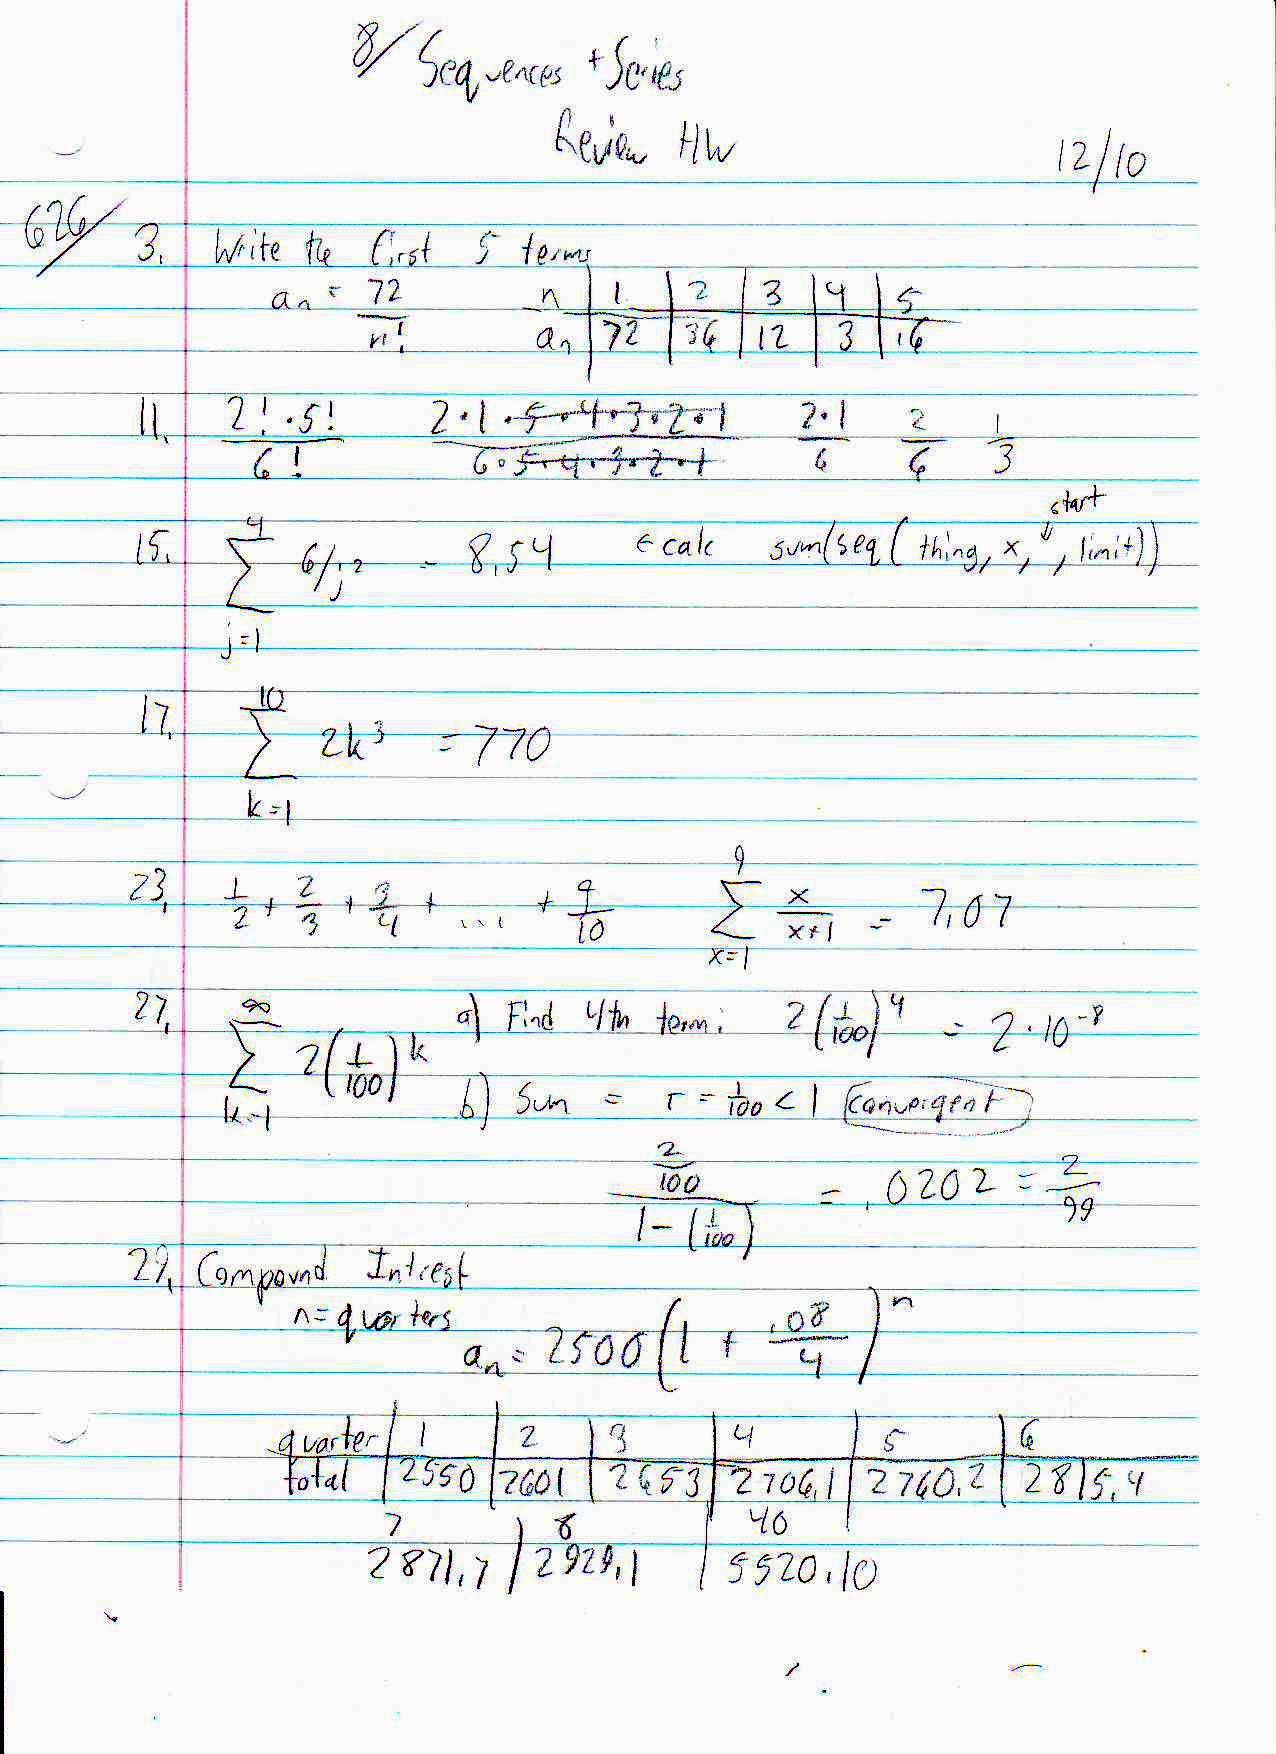 8/ Sequences + Series
Review HW
12/10
626/ 3. Write the first 5 terms
an = 72/n! n | 1 | 2 | 3 | 4 | 5
an | 72 | 36 | 12 | 3 | .6
11. 2!·5!/6! 2·1·5·4·3·2·1/6·5·4·3·2·1 2·1/6 2/6 1/3
start
15. 4 ∑ j=1 6/j² = 8.54 ← calc sum(seq(thing, x, ↓, limit))
17. 10 ∑ k=1 2k³ = 770
23. 1/2 + 2/3 + 3/4 + ... + 9/10 9 ∑ x=1 x/x+1 = 7.07
27. ∞ ∑ k=1 2(1/100)^k a) Find 4th term: 2(1/100)^4 = 2·10^-8
b) Sum = r = 1/100 < 1 convergent
2/100 / 1-(1/100) = .0202 = 2/99
29. Compound Intrest
n = quarters
an = 2500(1 + .08/4)^n
quarter | 1 | 2 | 3 | 4 | 5 | 6
total | 2550 | 2601 | 2653 | 2706.1 | 2760.2 | 2815.4
7 | 8 | 40
2871.7 | 2929.1 | 5520.10